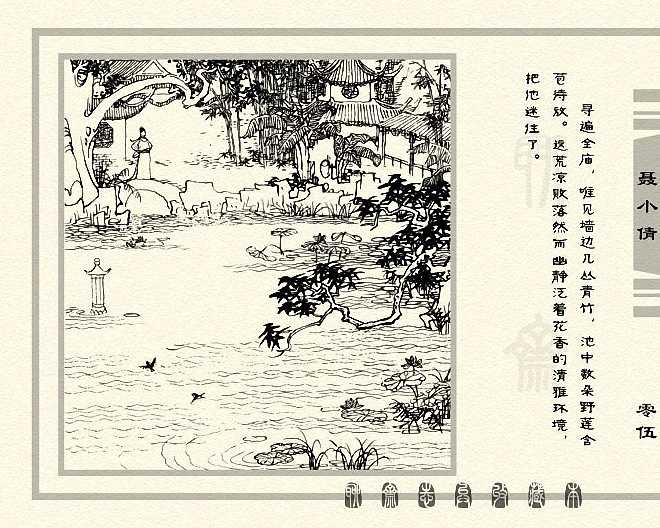 聂小倩
零伍
寻遍全庙，唯见墙边几丛青竹，池中数朵野莲含
苞待放。这荒凉败落然而幽静泛着花香的清雅环境，
把他迷住了。